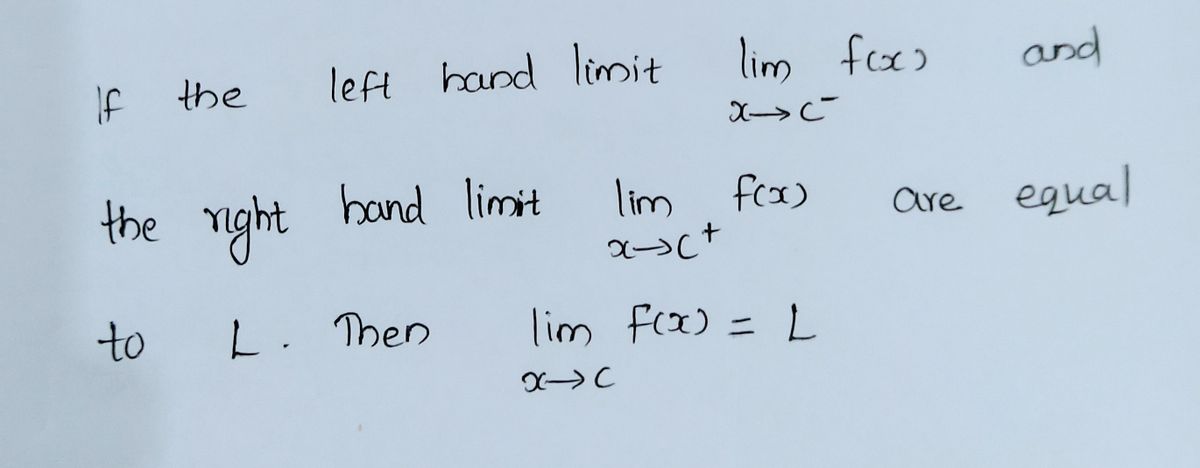 If the left hand limit lim f(x) and
x→c⁻
the right hand limit lim f(x) are equal
x→c⁺
to L. Then lim f(x) = L
x→c